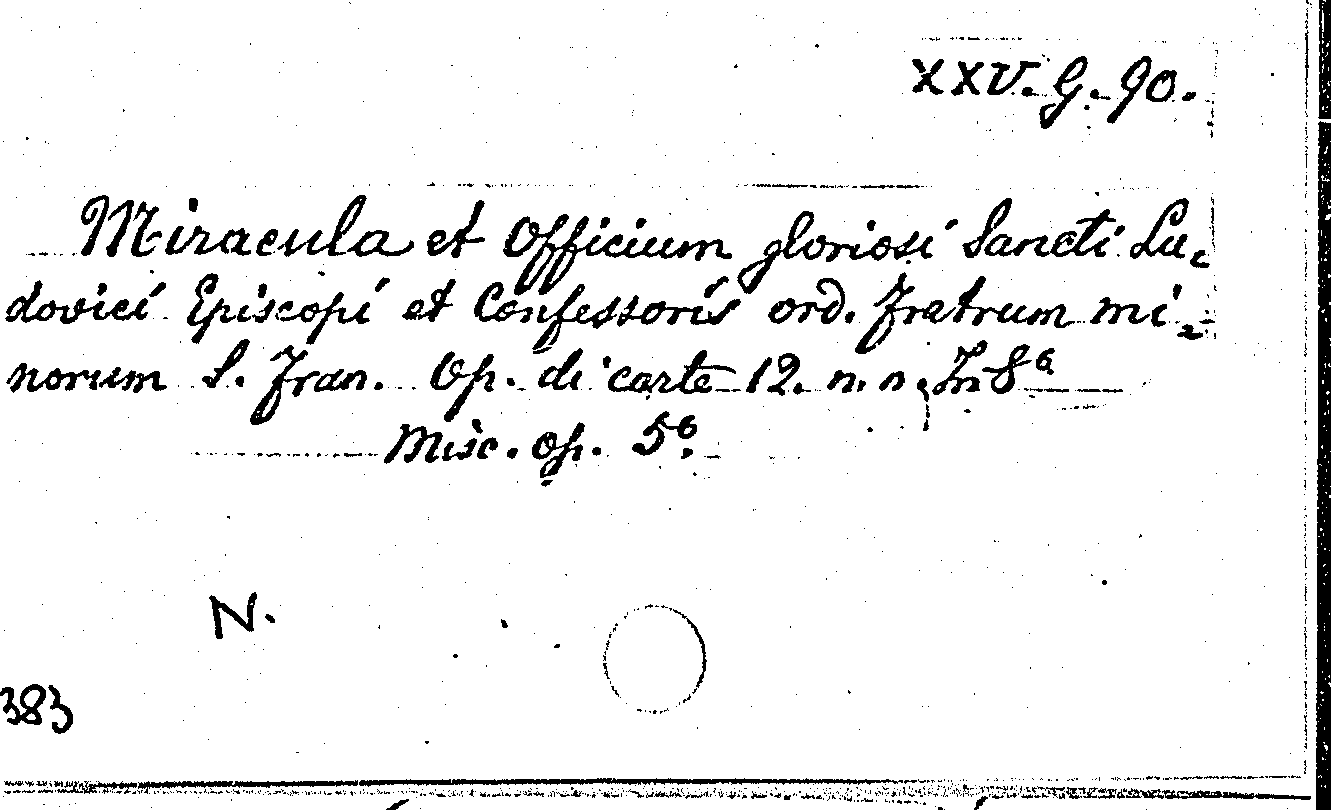 XXV. G. 90.
Miracula et Officium gloriosi Sancti Lu=
dovici Episcopi et Confessoris ord. Fratrum mi=
norum S. Fran. Op. di carte 12. n. n. In 8º
Misc. op. 5º.
N.
383